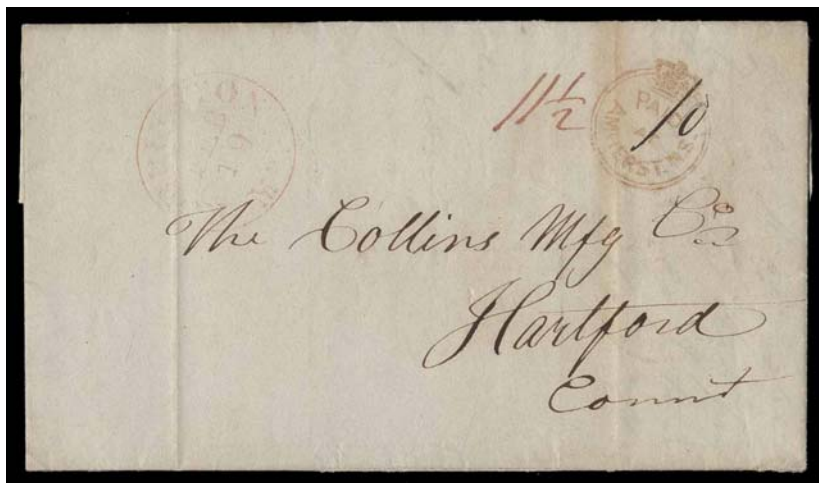 11½ 10
PAID
AT
AMHERST.N.S.
19
The Collins Mfg Co
Hartford
Connt